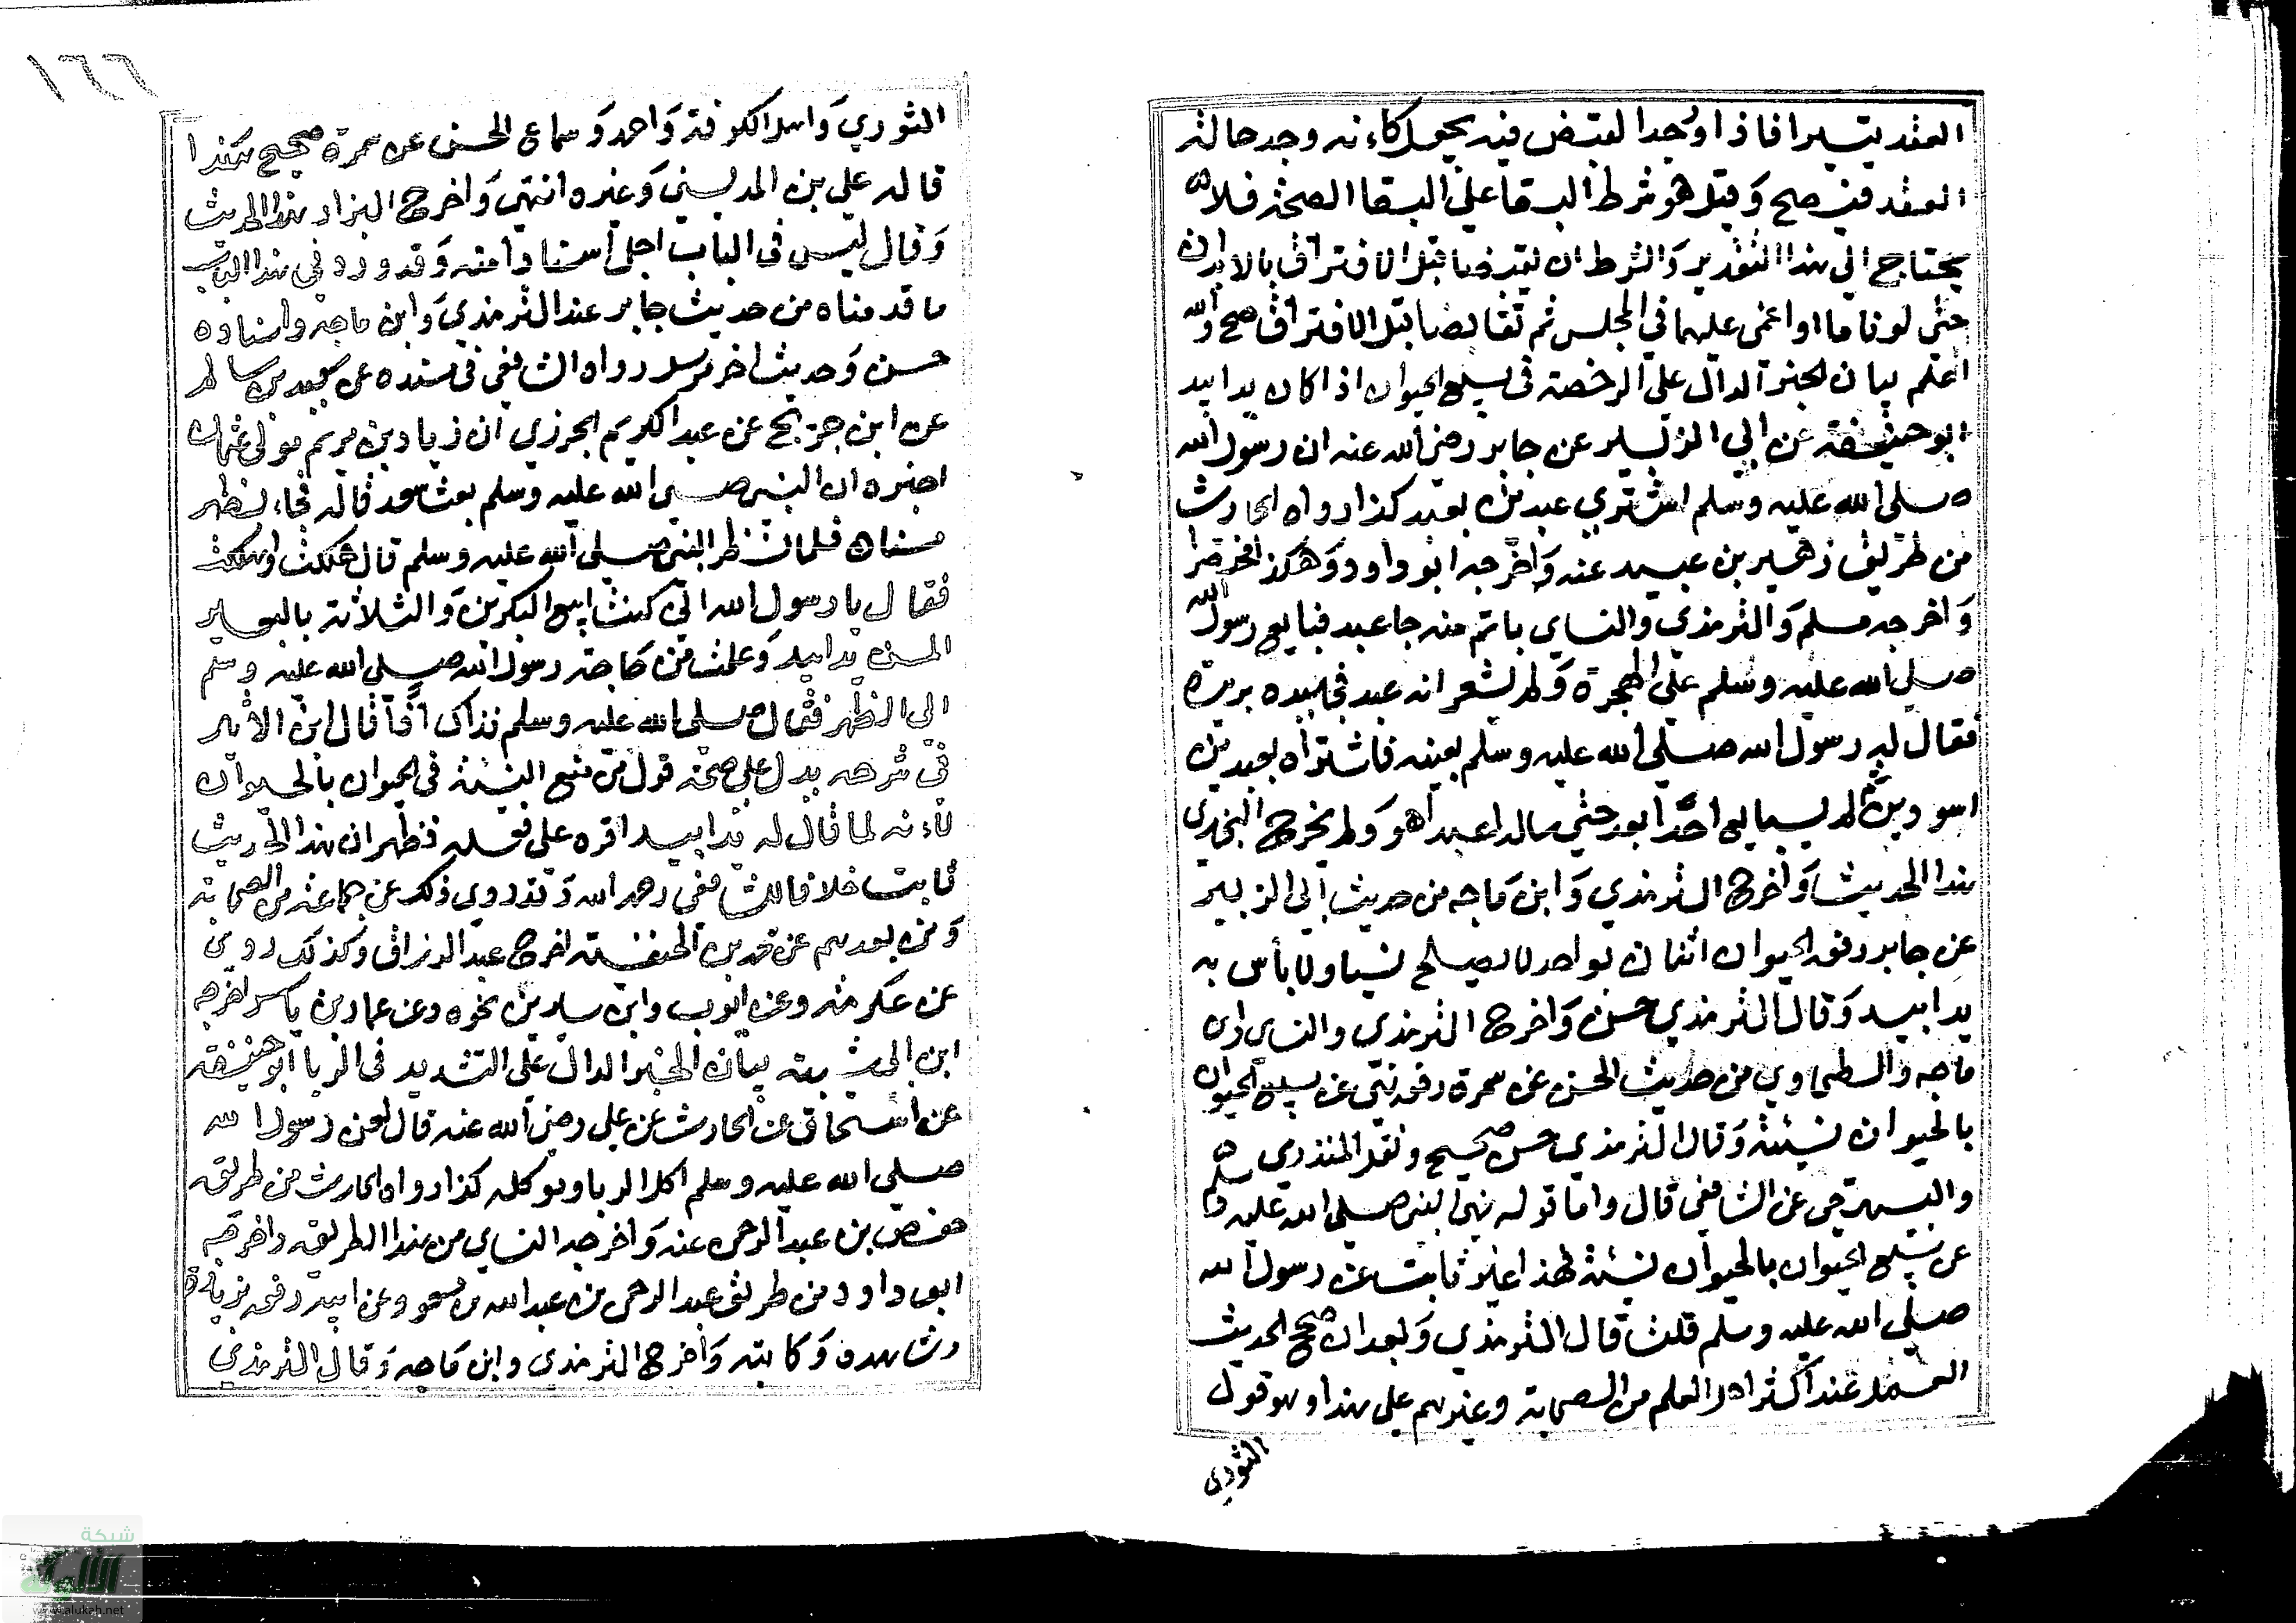 العقد يتيسرا فاذا وجدا لقبض فيه يجعل كاءنه وجد حالة
العقد فيصح وقيل هو شرط البقا علي البقا الصحة فلا
يحتاج الي هذا التقدير والشرط ان يتقابضا قبل الافتراق بالابدان
حتى لو ناما او اغمى عليهما في المجلس ثم تقابضا قبل الافتراق صح والله
اعلم بيان الخبر الدال علي الرخصة في بيع الحيوان اذا كان يدا بيد
ابو حنيفة عن ابي الزبير عن جابر رضي الله عنه ان رسول الله
صلى الله عليه وسلم اشتري عبدين بعبد كذا رواه الحارث
من طريق زهير بن عنه واخرجه ابو داود وهكذا مختصرا
واخرجه مسلم والترمذي والنساي باتم منه جا عبد فبايع رسول الله
صلى الله عليه وسلم علي الهجرة ولم يشعر انه عبد فجا سيده يريده
فقال له رسول الله صلى الله عليه وسلم بعنيه فاشتراه بعبدين
اسودين ثم لم يبايع احدا بعد حتى يساله اعبد هو ولم يخرج البخاري
هذا الحديث واخرج الترمذي وابن ماجه من حديث ابي الزبير
عن جابر رفعه الحيوان اثنان بواحد لا يصلح نسيا ولا بأس به
يدا بيد وقال الترمذي حسن واخرج الترمذي والنساي وابن
ماجه والطحاوي من حديث الحسن عن سمرة رفعه نهي عن بيع الحيوان
بالحيوان نسيئة وقال الترمذي حسن صحيح ونقل المنذري
والبيهقي عن الشافعي قال واما قوله نهى النبي صلى الله عليه وسلم
عن بيع الحيوان بالحيوان نسيئة فهذا غير ثابت عن رسول الله
صلى الله عليه وسلم قلت قال الترمذي وبعد ان صحح الحديث
العمل عند اكثر اهل العلم من الصحابة وغيرهم على هذا وهو قول
الثوري
١٦٦
الثوري واهل الكوفة واحمد وسماع الحسن عن سمرة صحيح هكذا
قاله علي بن المديني وغيره انتهى واخرج البزار هذا الحديث
وقال ليس في الباب اجل اسنادا منه وقد ورد في هذا الباب
ما قدمناه من حديث جابر عند الترمذي وابن ماجه واسناده
حسن وحديث اخر مرسل رواه الشافعي في مسنده عن سعيد بن سالم
عن ابن جريج عن عبد الكريم الجزري ان زياد بن مريم مولى عثمان
اخبره ان النبي صلى الله عليه وسلم بعث مصدقا له فجاء بظهر
مسنات فلما نظر النبي صلى الله عليه وسلم قال هلكت واهلكت
فقال يا رسول الله اني كنت ابيع البكرين والثلاثة بالبعير
المسن يدا بيد وعلمت من حاجة رسول الله صلى الله عليه وسلم
الي الظهر فقال صلى الله عليه وسلم فذاك اذا قال ابن الاثير
في شرحه يدل علي صحة قول من منع النسيئة في الحيوان بالحيوان
لاءنه لما قال له يدا بيد اقره على فعله فظهر ان هذا الحديث
ثابت خلافا للشافعي رحمه الله وقد روي ذلك عن جماعة من الصحابة
ومن بعدهم عن محمد بن الحنفية اخرج عبد الرزاق وكذلك روي
عن عكرمة وعن ايوب وابن سيرين نحوه وعن عمار بن ياسر اخرجه
ابن ابي شيبة بيان الخبر الدال على التشديد في الربا ابو حنيفة
عن اسحاق عن الحارث عن علي رضي الله عنه قال لعن رسول الله
صلى الله عليه وسلم اكل الربا وموكله كذا رواه الحارث من طريق
حفص بن عبد الرحمن عنه واخرجه النساي من هذا الطريق واخرجه
ابو داود من طريق عبد الرحمن بن عبد الله بن مسعود عن ابيه رفعه بزيادة
وشاهده وكاتبه واخرج الترمذي وابن ماجه وقال الترمذي
شبكة
الألوكة
www.alukah.net